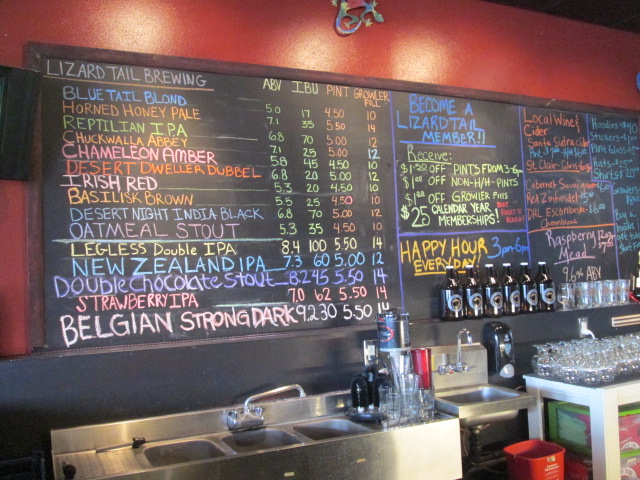 LIZARD TAIL BREWING
ABV IBU PINT GROWLER FILL
BLUE TAIL BLOND 5.0 17 4.50 10
HORNED HONEY PALE 7.1 35 5.50 14
REPTILIAN IPA
CHUCKWALLA ABBEY 6.8 70 5.00
CHAMELEON AMBER 7.1 25 5.00 12
DESERT DWELLER DUBBEL 5.8 45 4.50 10
IRISH RED 6.8 20 5.00
BASILISK BROWN 5.3 20 4.50 10
DESERT NIGHT INDIA BLACK 5.5 25 4.50
OATMEAL STOUT 6.8 70 5.00 12
5.3 35 4.50 10
LEGLESS DOUBLE IPA 8.4 100 5.50 14
NEW ZEALAND IPA 7.3 60 5.00 12
DOUBLE CHOCOLATE STOUT 8.2 45 5.50 14
STRAWBERRY IPA 7.0 62 5.50 14
BELGIAN STRONG DARK 9.2 30 5.50 14
BECOME A
LIZARD TAIL
MEMBER!!
Receive:
OFF PINTS FROM 3-6pm
OFF NON-H/H-PINTS
OFF GROWLER FILLS
$25 CALENDAR YEAR
MEMBERSHIPS!
HAPPY HOUR 3pm-6pm
EVERY DAY!
Local Wine &
Cider
Santa Sidra Cider
St. Clair
Cabernet Sauvignon
Red Zinfandel
DHL
Raspberry
Mead
9.6% ABV
Hoodies
Stickers
Pint Glass
Hats
Shirts